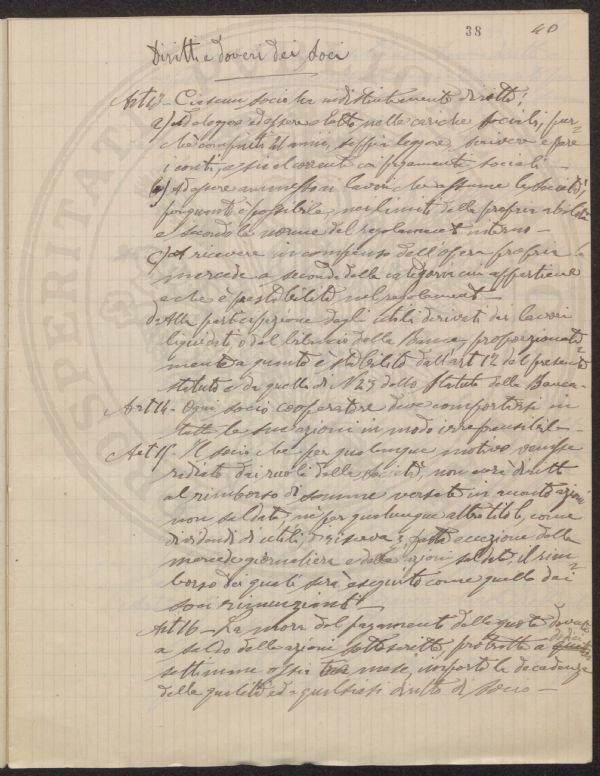 38 40
Diritti e doveri dei Soci
Art 13 - Ciascun socio ha indistintamente diritto:
a) Ad eleggere ed essere eletto nelle cariche sociali, pur
chè compiuti 21 anni, sappia leggere, scrivere e fare
i conti, e sia al corrente coi pagamenti sociali -
b) Ad essere ammesso nei lavori che assume la Società
per quanto è possibile, nei limiti della propria abilità
e secondo le norme del regolamento interno -
c) A ricevere in compenso dell'opera propria la
mercede a seconda della categoria cui appartiene
e che è prestabilita nel regolamento -
d) Alla partecipazione degli utili derivati dai lavori
liquidati, o dal bilancio della Banca, proporzionata=
mente a quanto è stabilito dall'art 12 del presente
statuto e da quello di N 23 dello Statuto della Banca -
Art 14 - Ogni socio cooperatore deve comportarsi in
tutte le sue azioni in modo irreprensibile -
Art 15 - Il socio che per qualunque motivo venisse
radiato dai ruoli della società, non avrà diritto
al rimborso di somme versate in acconto azioni
non saldate, nè per qualunque altro titolo, come
dividendi di utili, o riserva, fatta eccezione della
mercede giornaliera e delle azioni saldate, il rim=
borso dei quali sarà eseguito come quello dei
soci rinunzianti
Art 16 - La mora del pagamento delle quote dovute
a saldo delle azioni sottoscritte, protratta a
settimane ossia mese, importa la decadenza
della qualità ed a qualsiasi diritto di socio -
PROSPERITAT